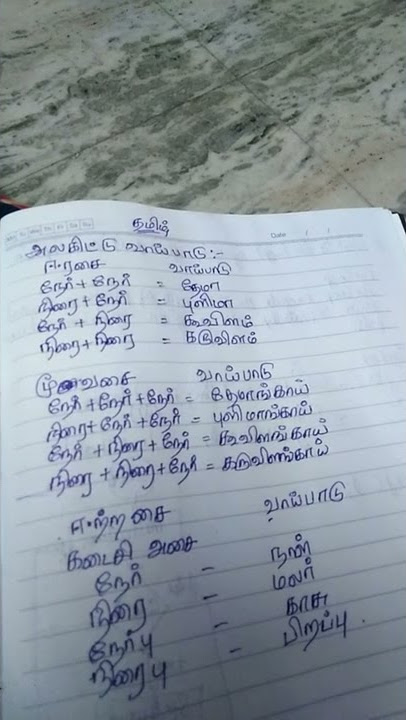 தமிழ்
Date / /
அலகிட்டு வாய்பாடு:-
ஈரசை வாய்பாடு
நேர் + நேர் = தேமா
நிரை + நேர் = புளிமா
நேர் + நிரை = கூவிளம்
நிரை + நிரை = கருவிளம்
மூவசை வாய்பாடு
நேர் + நேர் + நேர் = தேமாங்காய்
நிரை + நேர் + நேர் = புளிமாங்காய்
நேர் + நிரை + நேர் = கூவிளங்காய்
நிரை + நிரை + நேர் = கருவிளங்காய்
ஈற்றசை வாய்பாடு
கடைசி அசை
நேர் - நாள்
நிரை - மலர்
நேர்பு - காசு
நிரைபு - பிறப்பு.